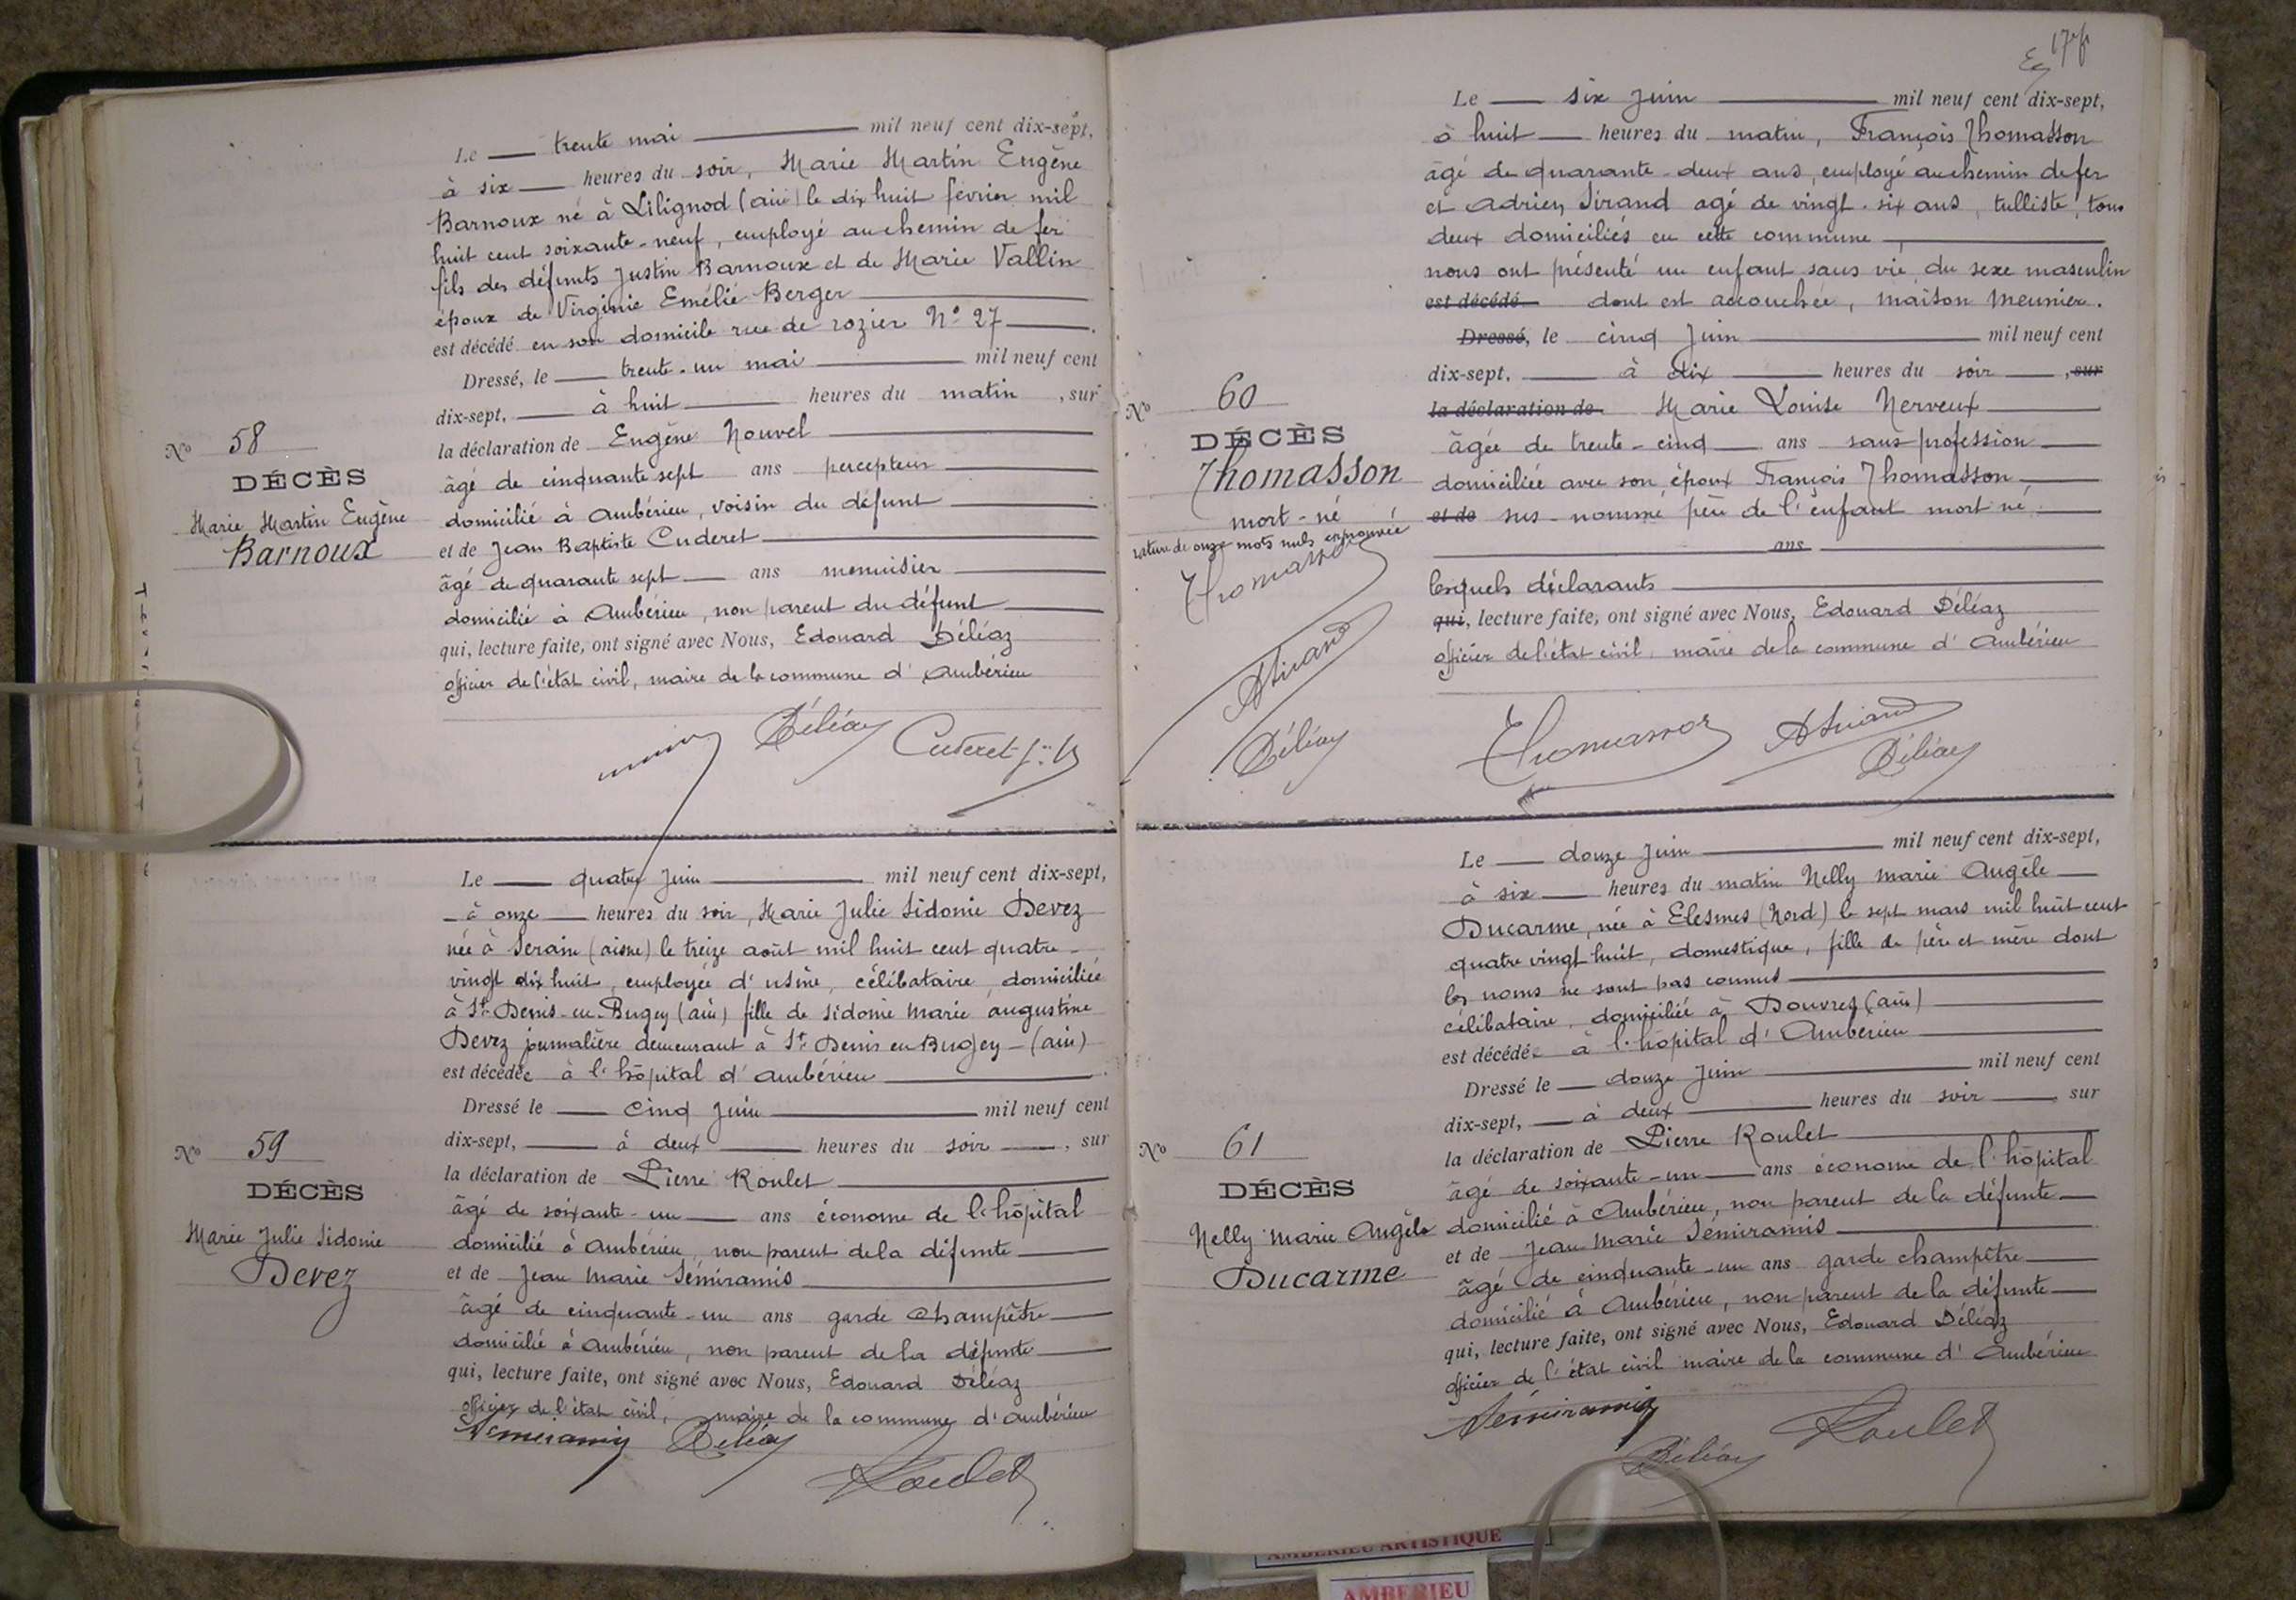 Le treute mai mil neuf cent dix-sept,
à six heures du soir, Marie Martin Eugène
Barnoux né à Lilignod (ain) le dix huit février mil
huit cent soixante-neuf, employé au chemin de fer
fils des défunts Justin Barnoux et de Marie Vallin
époux de Virginie Emélié Berger
est décédé en son domicile rue de rozier N° 27.
Dressé, le trente-un mai mil neuf cent
dix-sept, à huit heures du matin, sur
la déclaration de Eugène Nouvel
âgé de cinquante sept ans percepteur
domicilié à Ambérieu, voisin du défunt
et de Jean Baptiste Cuderet
âgé de quarante sept ans menuisier
domicilié à Ambérieu, non parent du défunt
qui, lecture faite, ont signé avec Nous, Edouard Déléaz
officier de l'état civil, maire de la commune d'Ambérieu
Déléaz Cuderet
N° 58
DÉCÈS
Marie Martin Eugène
Barnoux
Le quatre Juin mil neuf cent dix-sept,
à onze heures du soir, Marie Julie Sidonie Devez
née à Serain (aisne) le treize août mil huit cent quatre-
vingt dix huit, employée d'usine, célibataire, domiciliée
à St Denis-en-Bugey (ain) fille de Sidonie Marie Augustine
Devez journalière demeurant à St Denis en Bugey - (ain)
est décédée à l'hôpital d'Ambérieu.
Dressé le cinq Juin mil neuf cent
dix-sept, à deux heures du soir, sur
la déclaration de Pierre Roulet
âgé de soixante-un ans économe de l'hôpital
domicilié à Ambérieu, non parent de la défunte
et de Jean Marie Sémiramis
âgé de cinquante-un ans garde champêtre
domicilié à Ambérieu, non parent de la défunte
qui, lecture faite, ont signé avec Nous, Edouard Déléaz
officier de l'état civil, maire de la commune d'Ambérieu
Sémiramis Déléaz
Roulet
N° 59
DÉCÈS
Marie Julie Sidonie
Devez
17
Le six Juin mil neuf cent dix-sept,
à huit heures du matin, François Thomasson
âgé de quarante-deux ans, employé au chemin de fer
et Adrien Sirand agé de vingt-six ans, tulliste, tous
deux domiciliés en cette commune
nous ont présenté un enfant sans vie, du sexe masculin
est décédé dont est accouchée, maison Meunier.
Dressé, le cinq Juin mil neuf cent
dix-sept, à dix heures du soir, sur
la déclaration de Marie Louise Nerveux
âgée de trente-cinq ans sans profession
domiciliée avec son époux François Thomasson
et de sus-nommé, père de l'enfant mort né
ans
lesquels déclarants
qui, lecture faite, ont signé avec Nous, Edouard Déléaz
officier de l'état civil, maire de la commune d'Ambérieu
Thomasson ASirand
Déléaz
N° 60
DÉCÈS
Thomasson
mort-né
rature de onze mots nuls approuvée
Thomasson
ASirand
Déléaz
Le douze Juin mil neuf cent dix-sept,
à six heures du matin Nelly Marie Angèle
Ducarme, née à Elesmes (Nord) le sept mars mil huit cent
quatre vingt huit, domestique, fille de père et mère dont
les noms ne sont pas connus
célibataire, domiciliée à Douvres (ain)
est décédée à l'hôpital d'Ambérieu
Dressé le douze Juin mil neuf cent
dix-sept, à deux heures du soir, sur
la déclaration de Pierre Roulet
âgé de soixante-un ans économe de l'hôpital
domicilié à Ambérieu, non parent de la défunte
et de Jean Marie Sémiramis
âgé de cinquante-un ans garde champêtre
domicilié à Ambérieu, non parent de la défunte
qui, lecture faite, ont signé avec Nous, Edouard Déléaz
officier de l'état civil maire de la commune d'Ambérieu
Sémiramis Roulet
Déléaz
N° 61
DÉCÈS
Nelly Marie Angèle
Ducarme
AMBERIEU ARTISTIQUE
AMBERIEU